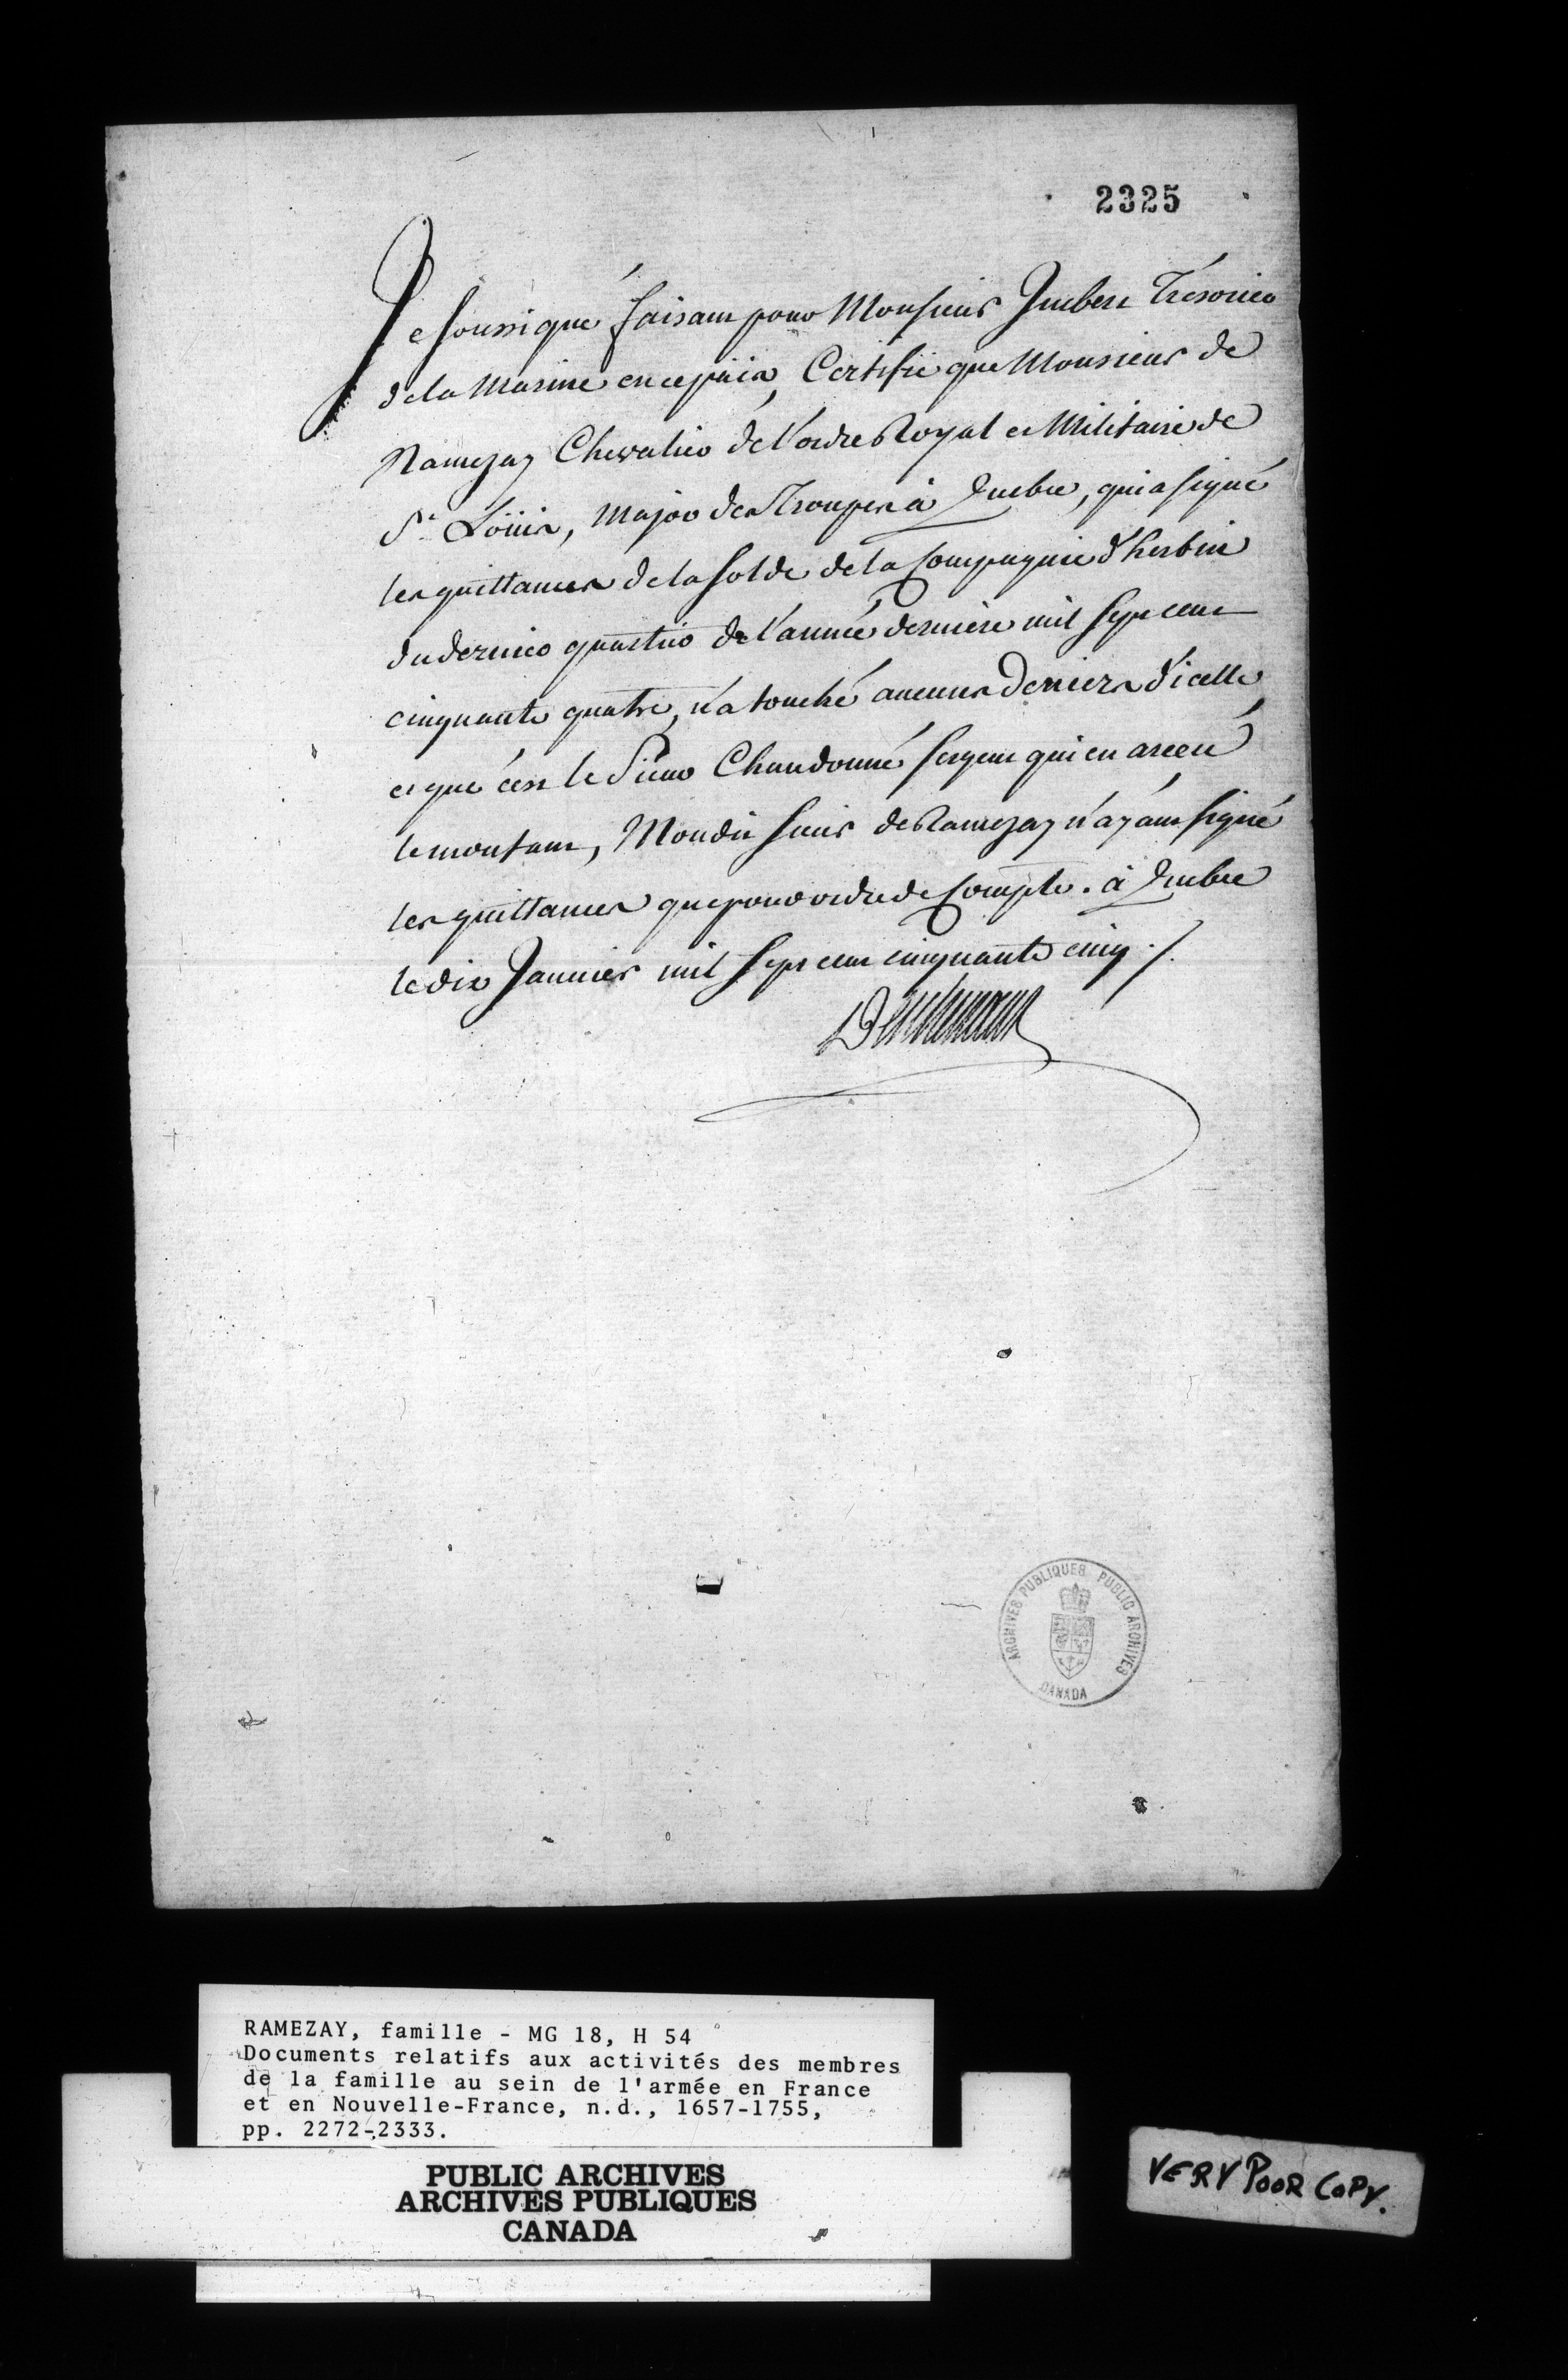 2325
Je soussigné faisant pour Monsieur Imbert Trésorier
de la Marine en ce païs, Certifie que Monsieur de
Ramezay Chevalier de l'ordre Royal et Militaire de
St. Loüis, Major des Troupes à Quebec, qui a signé
les quittances de la Solde de la Compagnie d'herbin
du dernier quartier de l'année derniere mil sept cent
cinquante quatre, n'a touché aucuns Deniers d'icelle
et que c'est le Sieur Chaudonné sergent qui en a receu
le montant, Mondit Sieur de Ramezay n'aÿant signé
les quittances que pour ordre de Compte. à Quebec
le dix Janvier mil sept cent cinquante cinq ./.
ARCHIVES PUBLIQUES PUBLIC ARCHIVES
CANADA
RAMEZAY, famille - MG 18, H 54
Documents relatifs aux activités des membres
de la famille au sein de l'armée en France
et en Nouvelle-France, n.d., 1657-1755,
pp. 2272-2333.
PUBLIC ARCHIVES
ARCHIVES PUBLIQUES
CANADA
VERY POOR COPY.